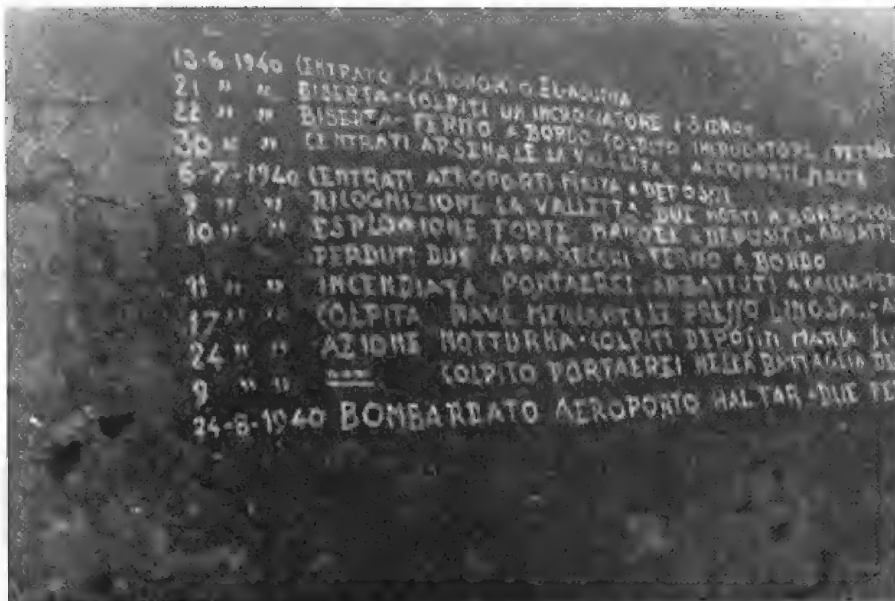 13-6-1940 CENTRATO AEROPORTO EL-AOUINA
21 " " BISERTA-COLPITI UN INCROCIATORE
22 " " BISERTA-FERITO A BORDO COLPITO INCROCIATORE
30 " " CENTRATI ARSENALE LA VALLETTA AEROPORTI MALTA
6-7-1940 CENTRATI AEROPORTI MALTA DEPOSITI
9 " " RICOGNIZIONE LA VALLETTA DUE MORTI A BORDO
10 " " ESPLOSIONE FORTE MANOEL DEPOSITI-ABBATT
PERDUTI DUE APPARECCHI-FERITO A BORDO
11 " " INCENDIATA PORTAEREI ABBATTUTI 4 CACCIA
17 " " COLPITA NAVE MERCANTILE PRESSO LINOSA
24 " " AZIONE NOTTURNA-COLPITI DEPOSITI MARIA
9 " " COLPITO PORTAEREI NELLA BATTAGLIA
24-8-1940 BOMBARDATO AEROPORTO HALFAR-DUE FE